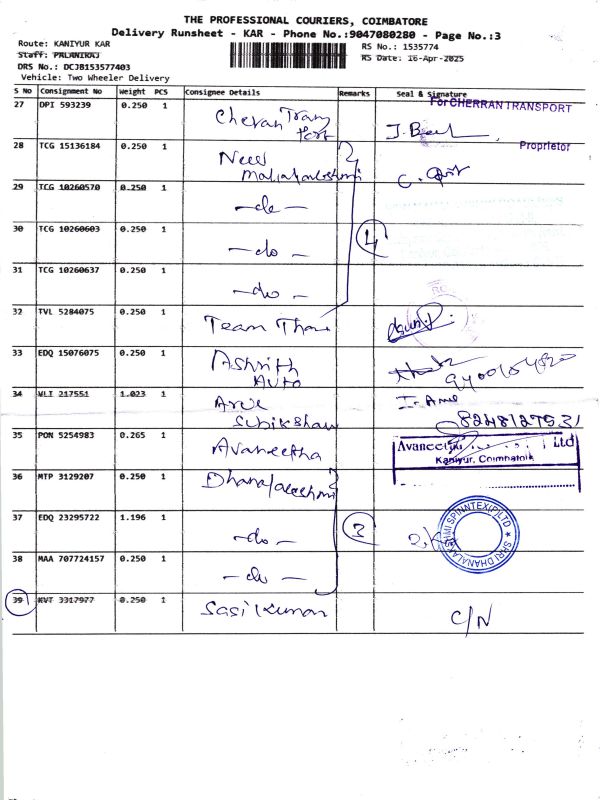 THE PROFESSIONAL COURIERS, COIMBATORE
Delivery Runsheet - KAR - Phone No.:9047080280 - Page No.:3
Route: KANIYUR KAR
RS No.: 1535774
Staff: PALANIRAJ
RS Date: 16-Apr-2025
DRS No.: DCJB153577403
Vehicle: Two Wheeler Delivery
S No Consignment No Weight PCS Consignee Details Remarks Seal & Signature
For CHERRAN TRANSPORT
27 DPI 593239 0.250 1 Cheran Trans
Port
Proprietor
28 TCG 15136184 0.250 1 New
Mahalakshmi
29 TCG 10260570 0.250 1 -do-
30 TCG 10260603 0.250 1 -do- 4
31 TCG 10260637 0.250 1 -do-
32 TVL 5284075 0.250 1 Team
33 EDQ 15076075 0.250 1 Ashrith
Auto
34 WLI 217551 1.023 1
8248127531
35 PON 5254983 0.265 1 Avaneetha Ltd
Kaniyur, Coimbatore
36 MTP 3129207 0.250 1 Dhanalakshmi
37 EDQ 23295722 1.196 1 -do- 3 SHRI DHANALAKSHMI SPINNTEX (P) LTD
38 MAA 707724157 0.250 1 -do-
39 KVT 3317977 0.250 1 Sasi Kumar C/N